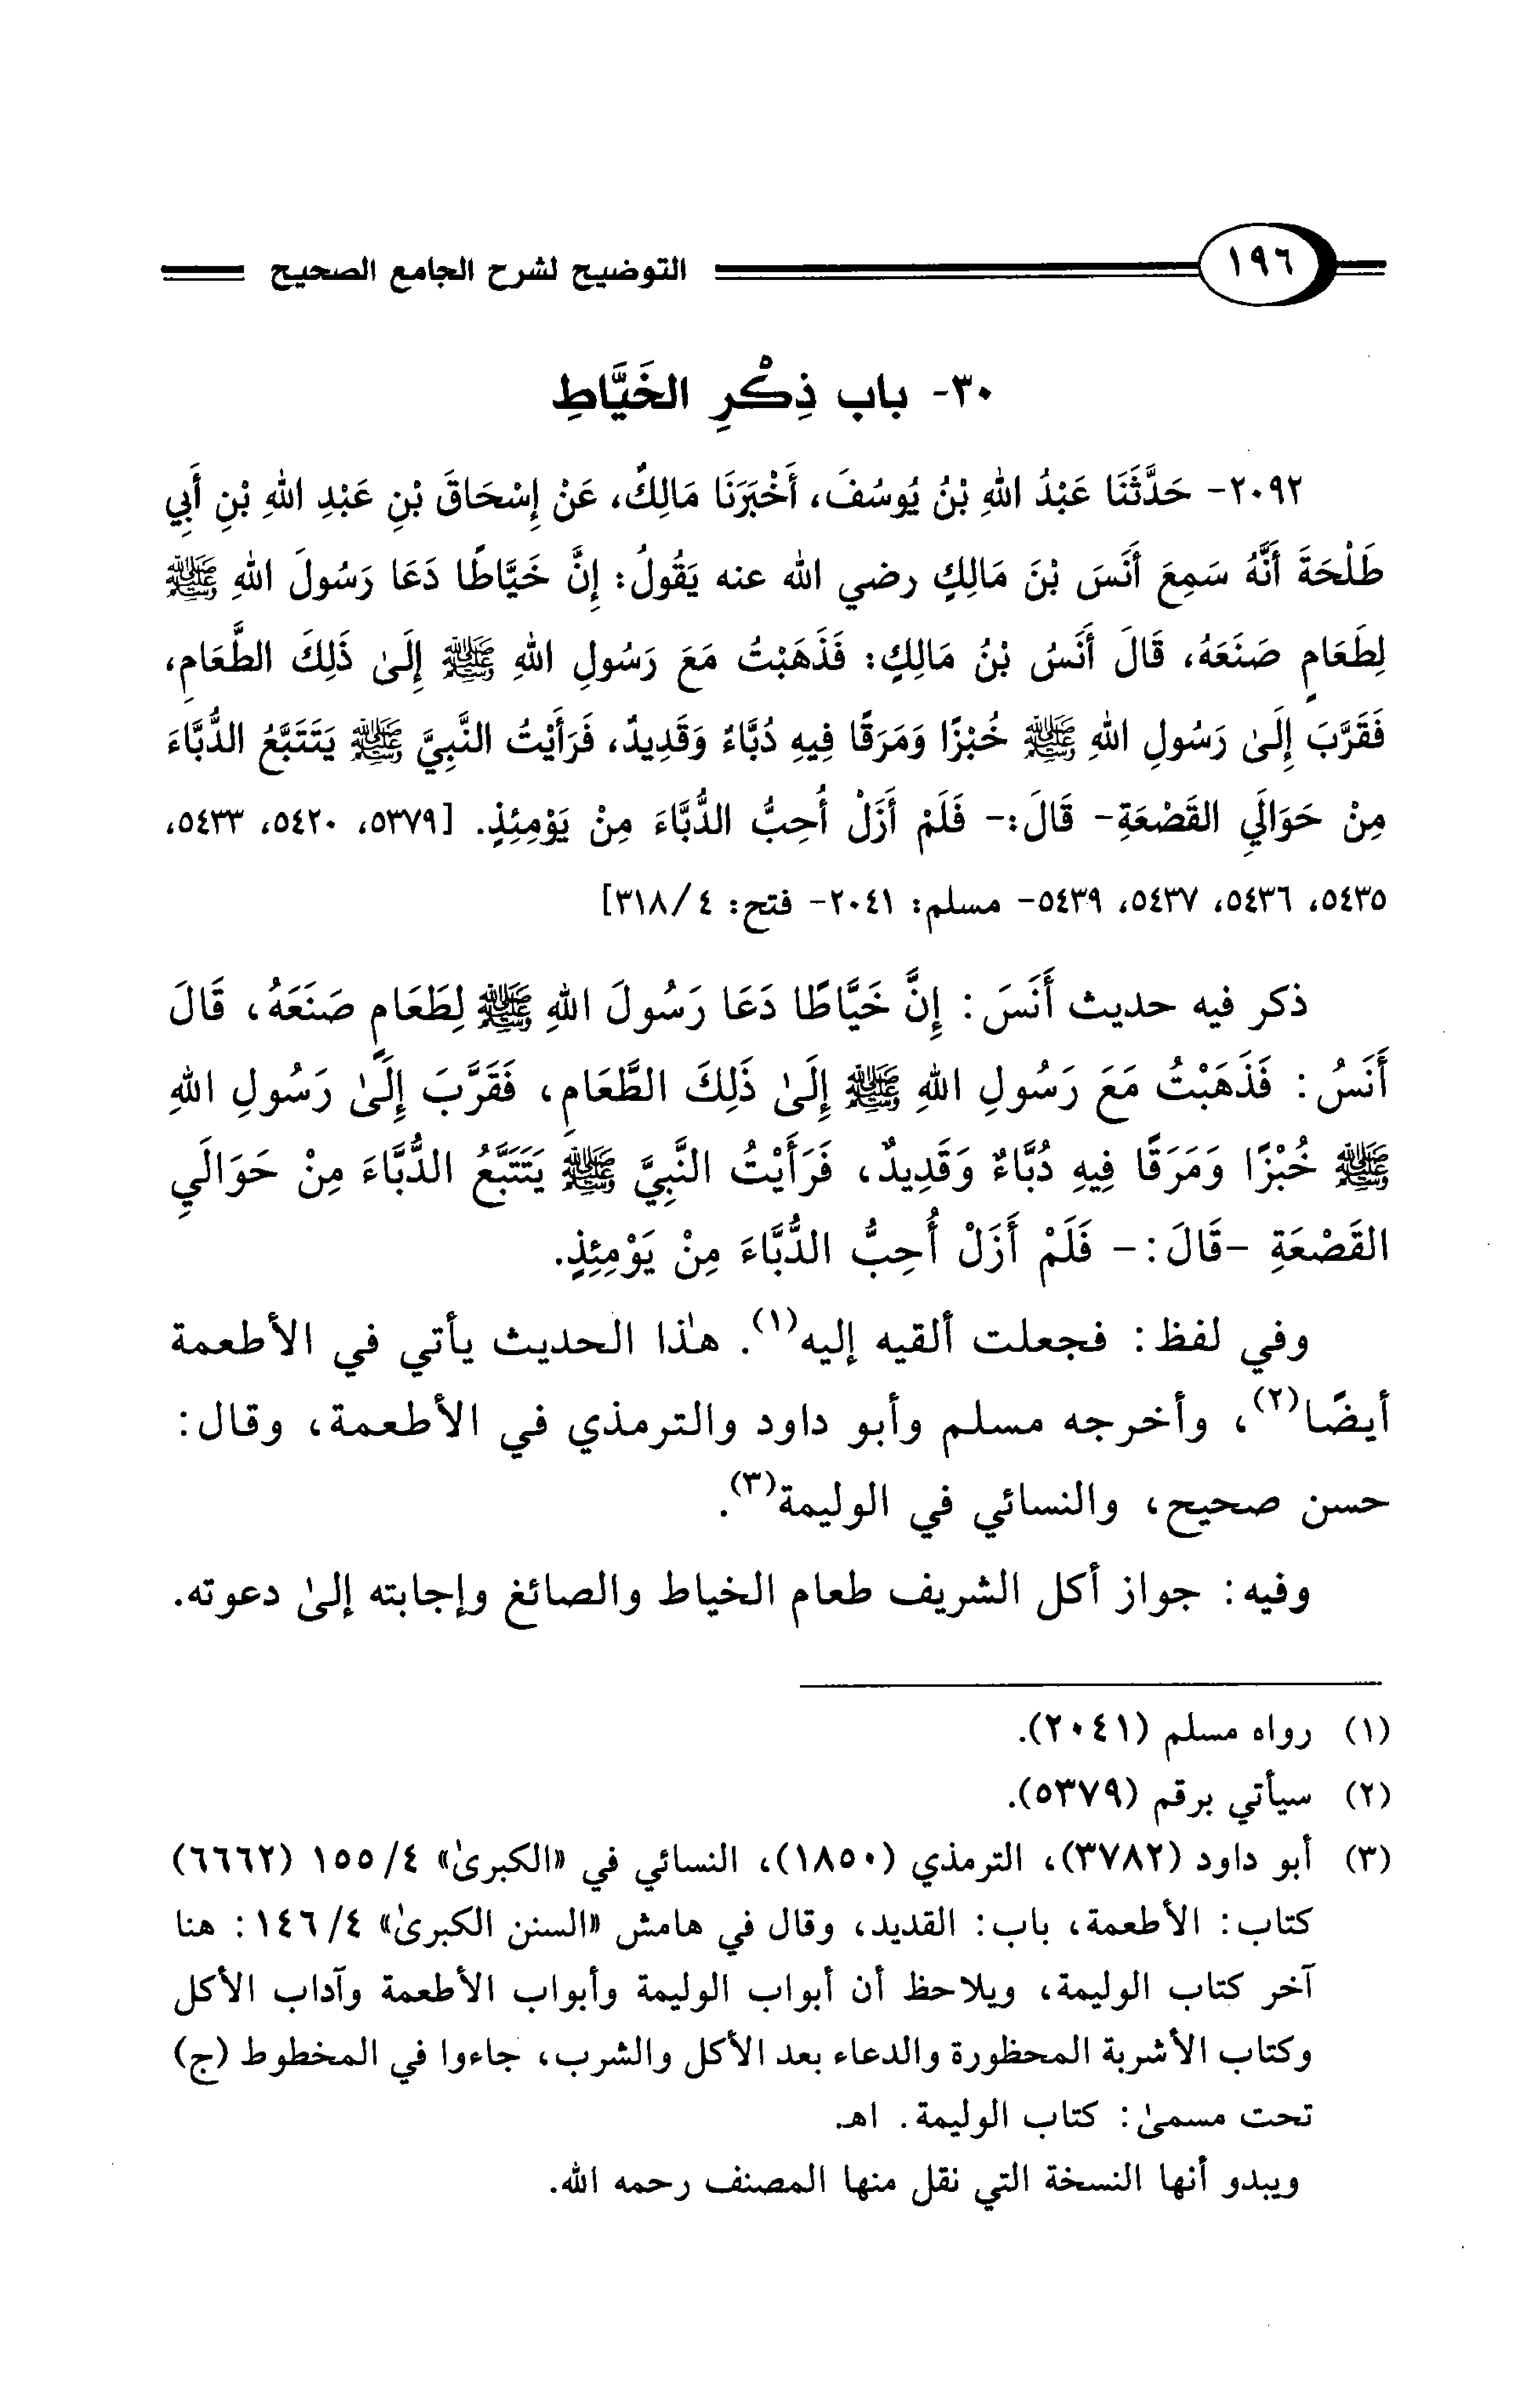 ١٩٦ التوضيح لشرح الجامع الصحيح
٣٠- باب ذِكْرِ الخَيَّاطِ
٢٠٩٢- حَدَّثَنَا عَبْدُ اللهِ بْنُ يُوسُفَ، أَخْبَرَنَا مَالِكٌ، عَنْ إِسْحَاقَ بْنِ عَبْدِ اللهِ بْنِ أَبِي
طَلْحَةَ أَنَّهُ سَمِعَ أَنَسَ بْنَ مَالِكٍ رضي الله عنه يَقُولُ: إِنَّ خَيَّاطًا دَعَا رَسُولَ اللهِ ﷺ
لِطَعَامٍ صَنَعَهُ، قَالَ أَنَسُ بْنُ مَالِكٍ: فَذَهَبْتُ مَعَ رَسُولِ اللهِ ﷺ إِلَىٰ ذَلِكَ الطَّعَامِ،
فَقَرَّبَ إِلَىٰ رَسُولِ اللهِ ﷺ خُبْزًا وَمَرَقًا فِيهِ دُبَّاءٌ وَقَدِيدٌ، فَرَأَيْتُ النَّبِيَّ ﷺ يَتَتَبَّعُ الدُّبَّاءَ
مِنْ حَوَالَيِ القَصْعَةِ- قَالَ:- فَلَمْ أَزَلْ أُحِبُّ الدُّبَّاءَ مِنْ يَوْمِئِذٍ. [٥٣٧٩، ٥٤٢٠، ٥٤٣٣،
٥٤٣٥، ٥٤٣٦، ٥٤٣٧، ٥٤٣٩- مسلم: ٢٠٤١- فتح: ٤/ ٣١٨]
ذكر فيه حديث أَنَسَ: إِنَّ خَيَّاطًا دَعَا رَسُولَ اللهِ ﷺ لِطَعَامٍ صَنَعَهُ، قَالَ
أَنَسُ: فَذَهَبْتُ مَعَ رَسُولِ اللهِ ﷺ إِلَىٰ ذَلِكَ الطَّعَامِ، فَقَرَّبَ إِلَىٰ رَسُولِ اللهِ
ﷺ خُبْزًا وَمَرَقًا فِيهِ دُبَّاءٌ وَقَدِيدٌ، فَرَأَيْتُ النَّبِيَّ ﷺ يَتَتَبَّعُ الدُّبَّاءَ مِنْ حَوَالَيِ
القَصْعَةِ -قَالَ:- فَلَمْ أَزَلْ أُحِبُّ الدُّبَّاءَ مِنْ يَوْمِئِذٍ.
وفي لفظ: فجعلت ألقيه إليه(١). هذا الحديث يأتي في الأطعمة
أيضًا(٢)، وأخرجه مسلم وأبو داود والترمذي في الأطعمة، وقال:
حسن صحيح، والنسائي في الوليمة(٣).
وفيه: جواز أكل الشريف طعام الخياط والصائغ وإجابته إلىٰ دعوته.
(١) رواه مسلم (٢٠٤١).
(٢) سيأتي برقم (٥٣٧٩).
(٣) أبو داود (٣٧٨٢)، الترمذي (١٨٥٠)، النسائي في «الكبرىٰ» ٤/ ١٥٥ (٦٦٦٢)
كتاب: الأطعمة، باب: القديد، وقال في هامش «السنن الكبرىٰ» ٤/ ١٤٦: هنا
آخر كتاب الوليمة، ويلاحظ أن أبواب الوليمة وأبواب الأطعمة وآداب الأكل
وكتاب الأشربة المحظورة والدعاء بعد الأكل والشرب، جاءوا في المخطوط (ج)
تحت مسمىٰ: كتاب الوليمة. اهـ.
ويبدو أنها النسخة التي نقل منها المصنف رحمه الله.